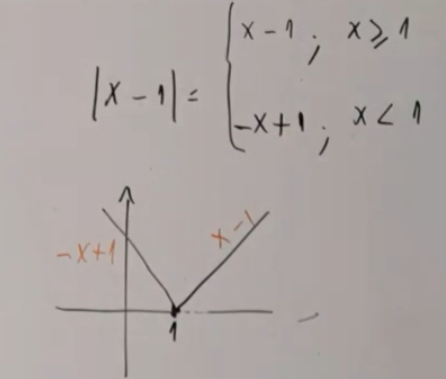 x - 1 ; x ⩾ 1
|x - 1| =
-x + 1 ; x < 1
-x+1
x-1
1